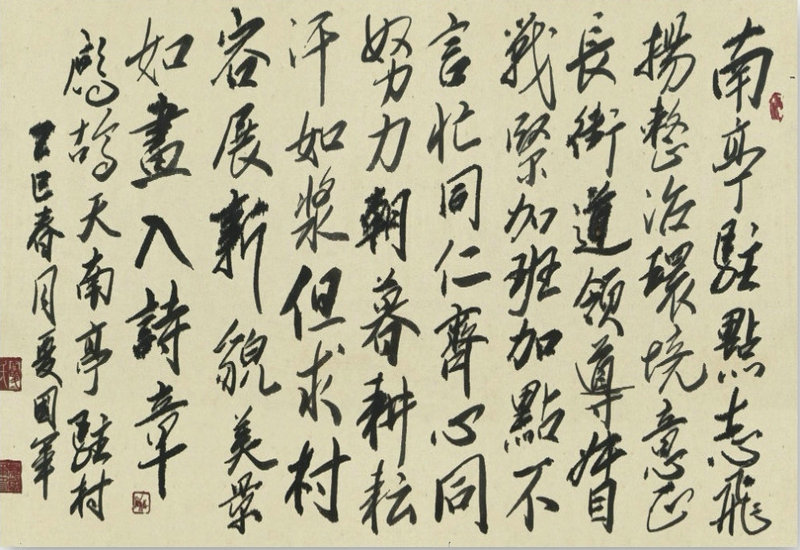 南亭駐點志飛
揚整治環境意正
長街道領導督
戰緊加班加點不
言忙同仁齊心同
努力朝暮耕耘
汗如漿但求村
容展新貌美景
如畫入詩章
鷓鴣天南亭駐村
乙巳春月夏国軍